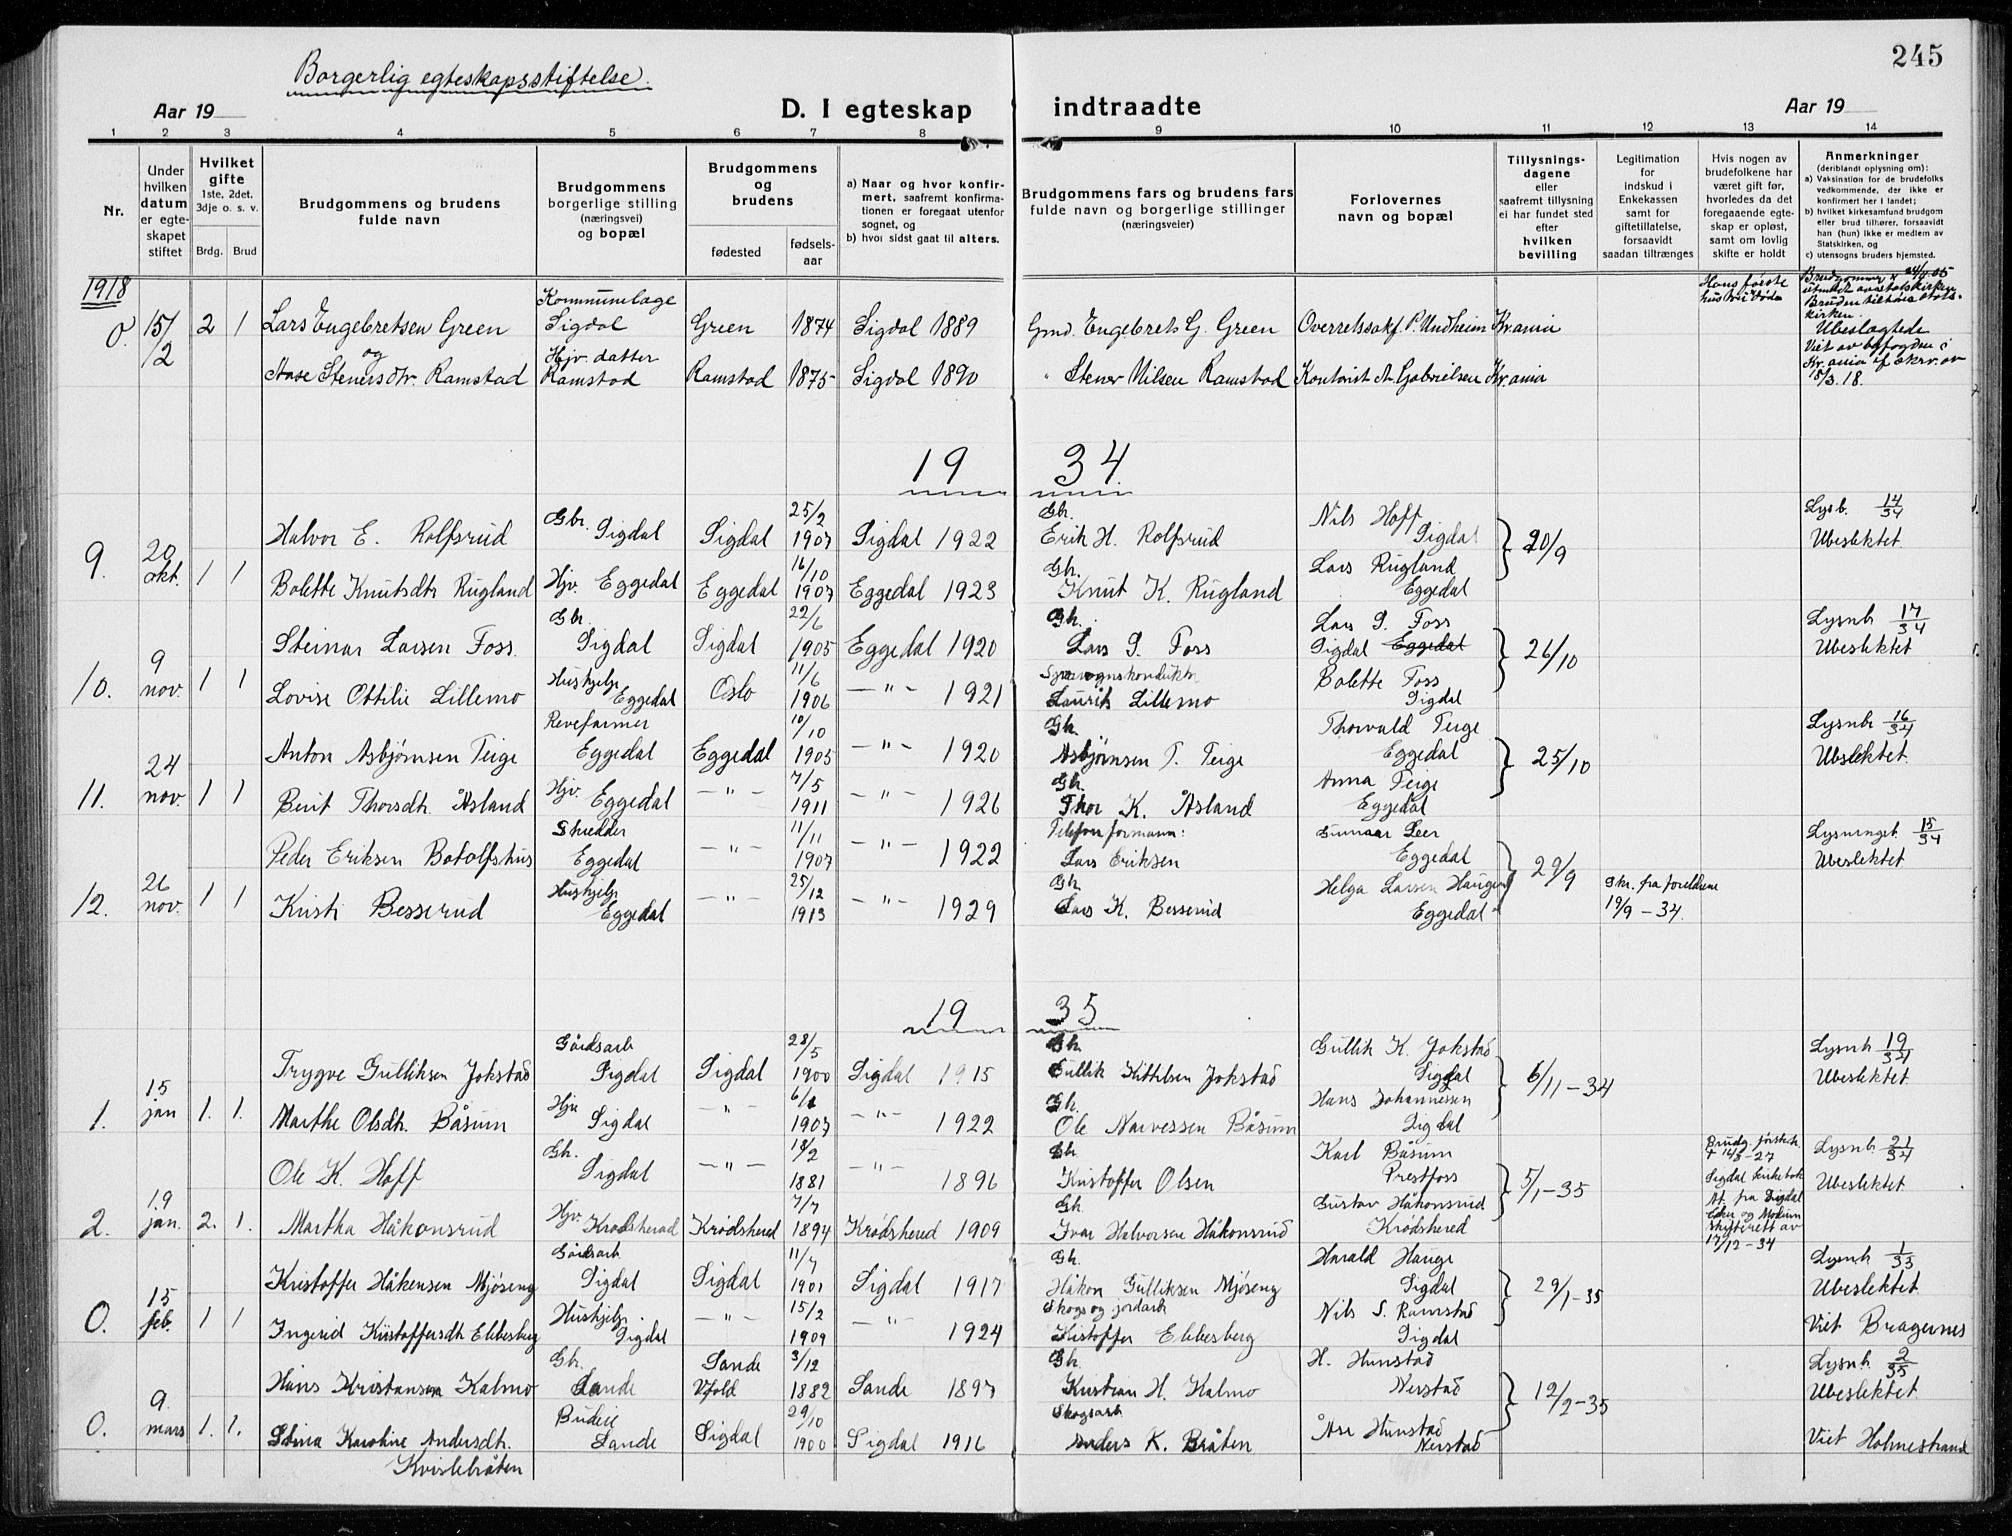 245
Borgerlig egteskapsstiftelse.
Aar 19
D. I egteskap indtraadte
Aar 19
1 2 3 4 5 6 7 8 9 10 11 12 13 14
Nr.
Under hvilken datum er egteskapet stiftet
Hvilket gifte 1ste, 2det, 3dje o. s. v.
Brdg. Brud
Brudgommens og brudens fulde navn
Brudgommens borgerlige stilling (næringsvei) og bopæl
Brudgommens og brudens
fødested
fødsels-aar
a) Naar og hvor konfirmert, saafremt konfirmationen er foregaat utenfor sognet, og
b) hvor sidst gaat til alters.
Brudgommens fars og brudens fars fulde navn og borgerlige stillinger (næringsveier)
Forlovernes navn og bopæl
Tillysningsdagene eller saafremt tillysning ei har fundet sted efter hvilken bevilling
Legitimation for indskud i Enkekassen samt for giftetillatelse, forsaavidt saadan tiltrænges
Hvis nogen av brudefolkene har været gift før, hvorledes da det foregaaende egteskap er opløst, samt om lovlig skifte er holdt
Anmerkninger (deriblandt oplysning om):
a) Vaksination for de brudefolks vedkommende, der ikke er konfirmert her i landet;
b) hvilket kirkesamfund brudgom eller brud tilhører, forsaavidt han (hun) ikke er medlem av Statskirken, og
c) utensogns bruders hjemsted.
1918
0. 15/2 2 1 Lars Engebretsen Green Kommunelæge Sigdal Green 1874 Sigdal 1889 Gmd. Engebret G. Green Overretssakf. P. Undheim Kr.ania Hans første hustru døde
og
Aase Stenersdtr. Ramstad Hjv. datter Ramstad Ramstad 1875 Sigdal 1890 " Stener Nilsen Ramstad Kontorist A. Gabrielsen Kr.ania
Brudgommen 24/4.05 utmeldt av statskirken Bruden tilhører stats-kirken.
Ubeslægtede
Viet av byfogden i Kr.ania if. skr. av 15/3.18.
19 34
9. 20 okt. 1 1 Halvor E. Rolfsrud Gbr. Sigdal Sigdal 25/2 1907 Sigdal 1922 Gbr. Erik H. Rolfsrud Nils Hoff Sigdal 20/9 Lysb. 14/34 Ubeslektet.
Bolette Knutsdtr Rugland Hjv. Eggedal Eggedal 16/10 1907 Eggedal 1923 Gb. Knut K. Rugland Lars Rugland Eggedal
10. 9 nov. 1 1 Steinar Larsen Foss. Gbr. Sigdal Sigdal 22/6 1905 Eggedal 1920 Gb. Lars S. Foss Lars S. Foss Sigdal Eggedal 26/10 Lysnb 17/34 Ubeslektet
Lovise Ottilie Lillemo Hushjelp Eggedal Oslo 11/6 1906 — " — 1921 Sporvognskonduktør Laurits Lillemo Bolette Foss Sigdal
11. 24 nov. 1 1 Anton Asbjørnsen Teige Revefarmer Eggedal Eggedal 10/10 1905 — " — 1920 Gb. Asbjørnsen T. Teige Thorvald Teige Eggedal 25/10 Lysnb 16/34 Ubslektet.
Berit Thorsdtr. Åsland Hjv. Eggedal — " — 7/5 1911 — " — 1926 Gb. Thor K. Åsland Anna Teige Eggedal
12. 26 nov. 1 1 Peder Eriksen Botolfshus Skredder Eggedal — " — 11/11 1907 — " — 1922 Telefonformann: Lars Eriksen Gunnar Leer Eggedal 29/9 Lysninget 15/34 Ubeslektet
Kristi Besserud Hushjelp Eggedal — " — 25/12 1913 — " — 1929 Gb. Lars K. Besserud Helga Larsen Haugen Eggedal Skr. fra foreldrene 19/9 - 34.
19 35
1. 15 jan 1. 1. Trygve Gulliksen Jokstad Gårdsarb Sigdal Sigdal 28/5 1900 Sigdal 1915 Gb. Gullik Kittilsen Jokstad Gullik K. Jokstad Sigdal 6/11 - 34 Lysnb 19/34 Ubeslektet.
Marthe Olsdtr. Båsum Hjv Sigdal — " — 6/1 1907 — " — 1922 Gb. Ole Narvessen Båsum Hans Johannessen Sigdal
2. 19 jan. 2. 1. Ole K. Hoff Gb. Sigdal — " — 18/2 1881 — " — 1896 Gb. Kristoffer Olsen Karl Båsum Prestfoss 5/1 - 35 Lysnb. 21/34 Ubeslektet.
Martha Håkonsrud Hjv. Krødsherad Krødsherad 7/7 1894 Krødsherad 1909 Gb. Ivar Halvorsen Håkonsrud Gustav Håkonsrud Krødsherad
Brudg. første h. + 14/8 - 27 Sigdal kirkebok At. fra Sigdal Eiker og Modum skifterett av 17/12 - 34
0. 15 feb. 1 1 Kristoffer Håkensen Mjøseng Gårdsarb Sigdal Sigdal 11/7 1901 Sigdal 1917 Gb. Håkon Gulliksen Mjøseng Harald Hauge Sigdal 29/1 - 35 Lysnb 1/35 Ubeslektet.
Ingerid Kristoffersdtr Ebbesberg Hushjelp. Sigdal — " — 15/2 1909 — " — 1924 Skogs og jordarb Kristoffer Ebbesberg Nils S. Ramstad Sigdal Viet Bragernes
0. 9. mars 1. 1. Hans Kristansen Kalmo Gbr. Sande Sande Vfold 3/12 1882 Sande 1897 Gb. Kristian H. Kalmo H. Hunstad Nerstad 12/2 - 35 Lysnb 2/35 Ubeslektet.
Stina Karoline Andersdtr. Kvislebråten Budeie Sande Sigdal 29/10 1900 Sigdal 1916 Skogsarb Anders K. Bråten Åse Hunstad Nerstad Viet Holmestrand